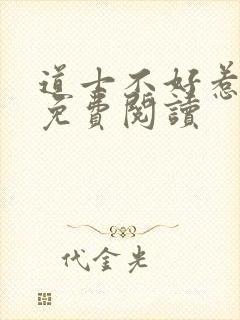 道士不好惹
免費閱讀
代金光